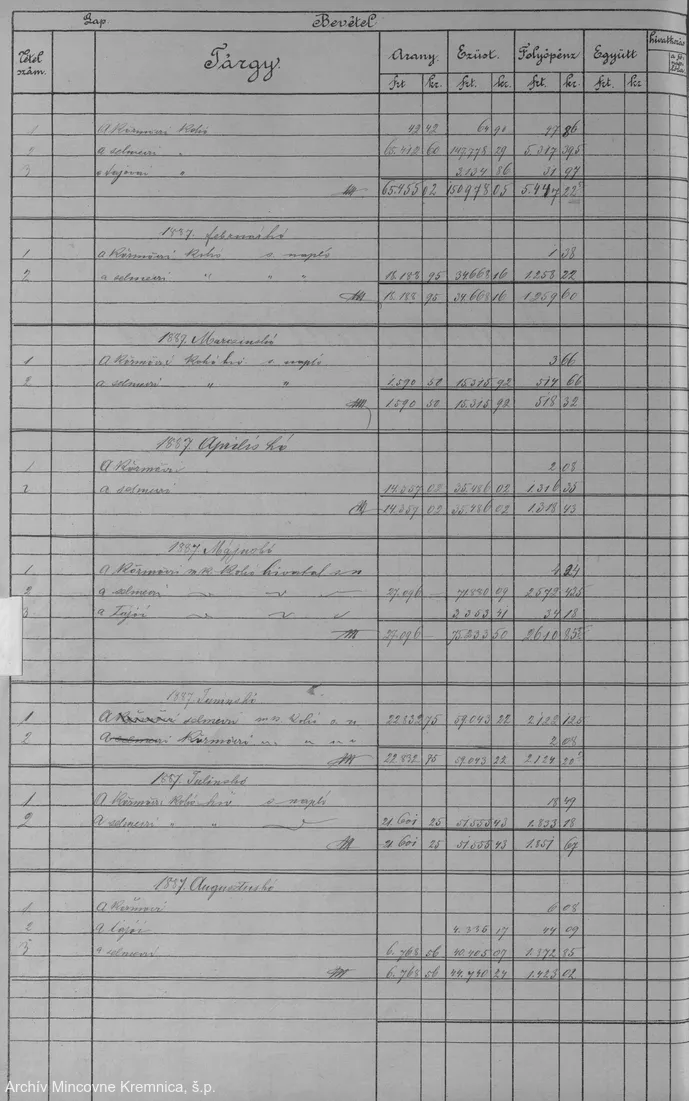 Lap. Bevétel
Tétel szám. Tárgy. Arany. Ezüst. Folyópénz Együtt hivatkozás
frt kr. frt. kr. frt. kr. frt. kr.
1 A Körmöczi kohó 42 42 64 90 97 86
2 a selmeczi " 65.412 60 147.778 29 5.317 395
3 a tajovai " 3.134 86 31 97
65.455 02 150.978 05 5.447 22
1887. februárhó
1 a Körmöczi kohó s. napló 1 38
2 a selmeczi " " " 18.188 95 34668 16 1258 22
18.188 95 34.668 16 1259 60
1887. Marcziushó
1 A Körmöczi kohó hiv s. napló 3 66
2 a selmeczi " " 1.590 50 15.315 92 514 66
1.590 50 15.315 92 518 32
1887. Április hó
1 A Körmöczi 2 08
2 a selmeczi 14.357 02 35.486 02 1.316 35
14.357 02 35.486 02 1318 43
1887. Májushó
1 a Körmöczi m. k. kohó hivatal s n 4 24
2 a selmeczi 27.096 – 71.880 09 2572 435
3 a Tajói 3353 41 34 18
27.096 – 75.233 50 2610 85
1887. Juniushó
1 A selmeczi m k kohó s. n 22832 75 59.043 22 2122 125
2 A Körmöczi " " " " 2 08
22.832 75 59.043 22 2124 20
1887. Juliushó
1 A Körmöczi kohó hiv s napló 18 49
2 a selmeczi " " 21 601 25 51.555 43 1.833 18
21 601 25 51.555 43 1.851 67
1887. Augusztushó
1 A Körmöczi 6 08
2 a tajói 4.335 17 44 09
3 a selmeczi 6.768 56 40.405 07 1.372 85
6.768 56 44.740 24 1.423 02
Archív Mincovne Kremnica, š.p.